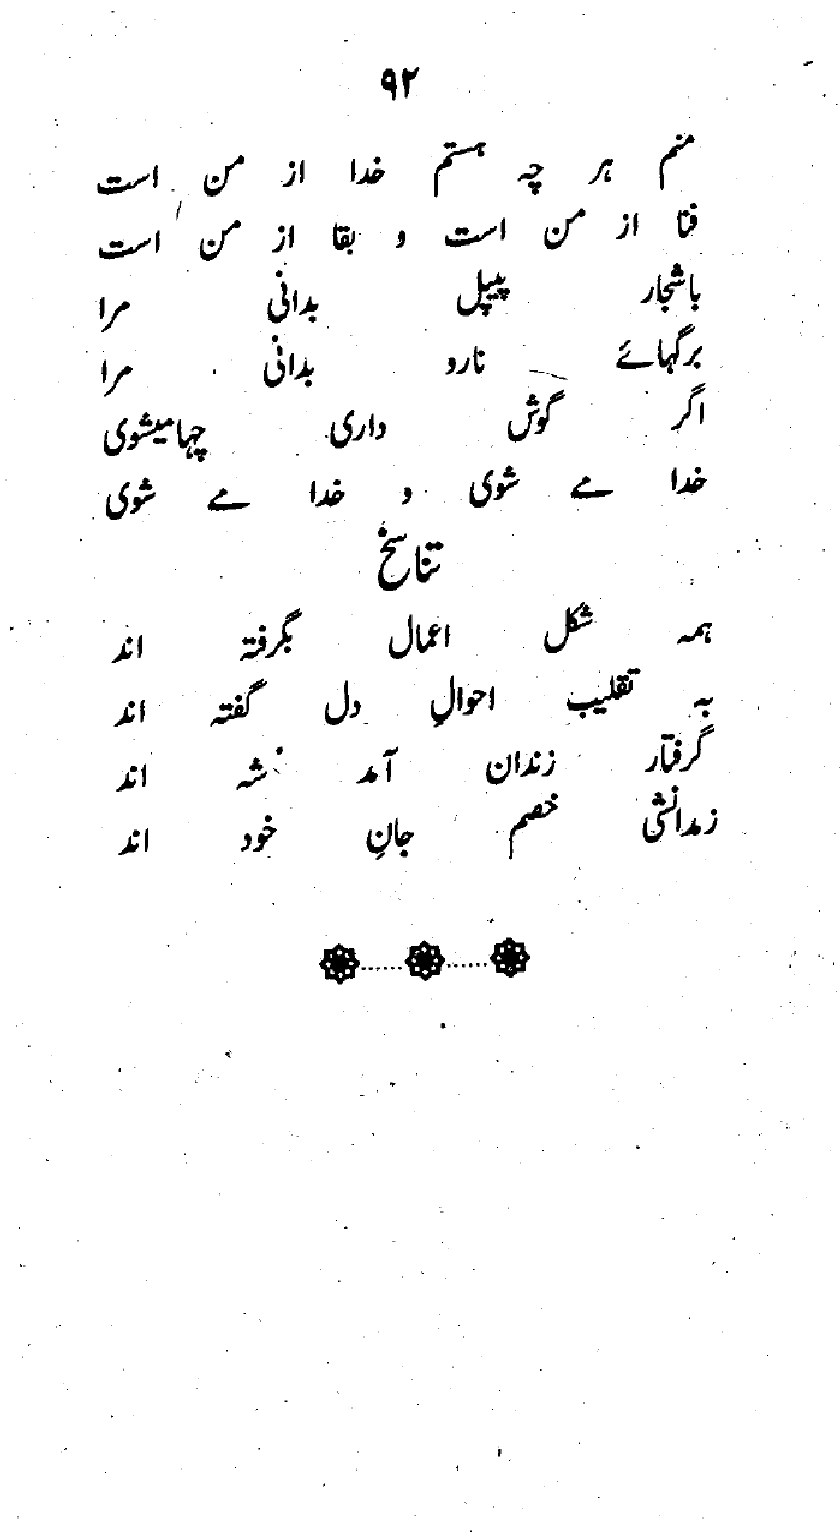 ۹۲
منم هر چه هستم خدا از من است
فنا از من است و بقا از من است
باشجار پیپل بدانی مرا
برگہائے نارو بدانی مرا
اگر گوش داری چہا میشوی
خدا مے شوی و خدا مے شوی
تناسخ
ہمہ شکل اعمال بگرفتہ اند
بہ تقلیب احوالِ دل گفتہ اند
گرفتار زندان آمد شہ اند
زمدانشی خصم جانِ خود اند